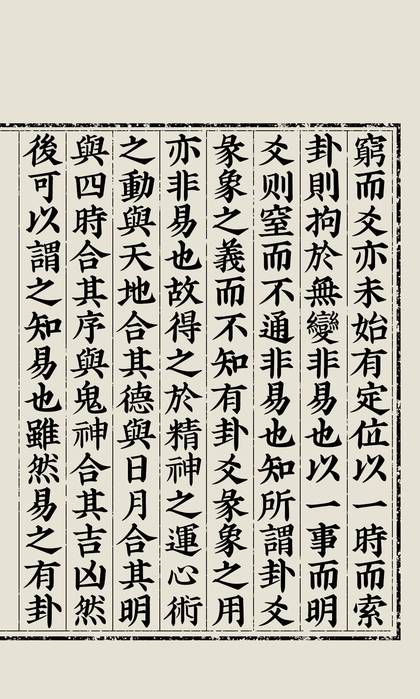 窮而爻亦未始有定位以一時而索
卦則拘於無變非易也以一事而明
爻则窒而不通非易也知所謂卦爻
彖象之義而不知有卦爻彖象之用
亦非易也故得之於精神之運心術
之動與天地合其德與日月合其明
與四時合其序與鬼神合其吉凶然
後可以謂之知易也雖然易之有卦